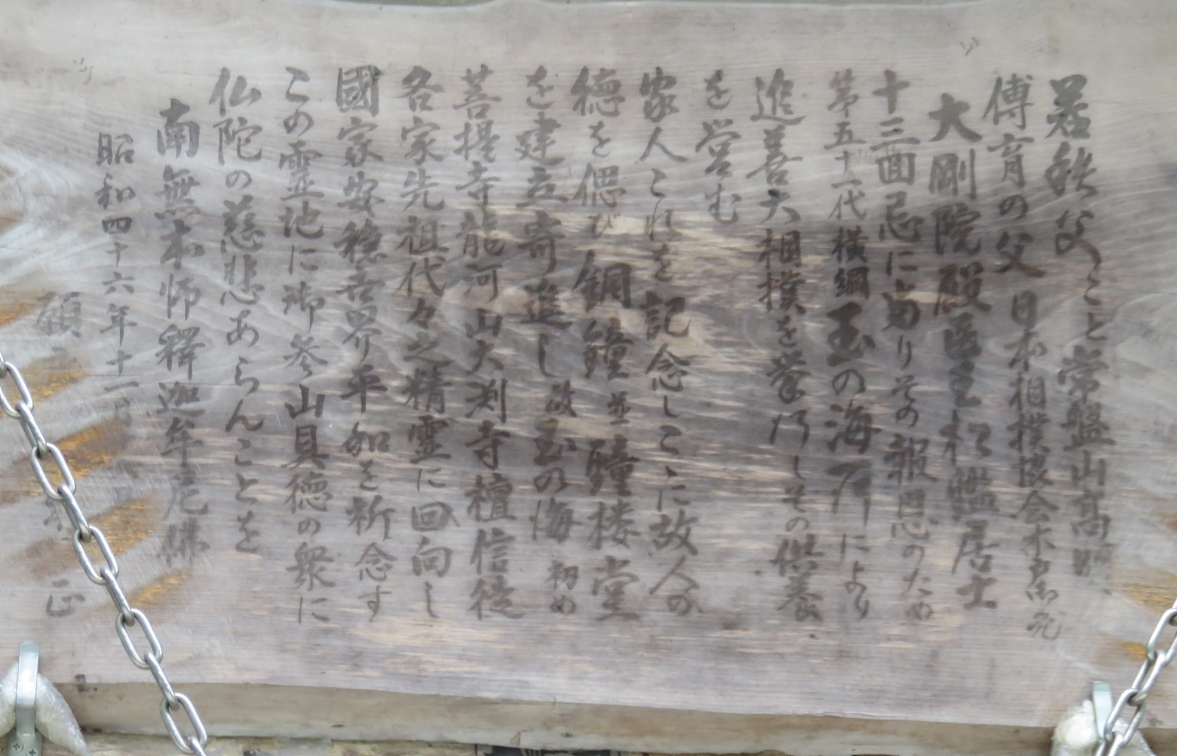 若秩父こと常盤山高
傅育の父 日本相撲協会木
大剛院殿医王松艦居士
十三回忌に当りその報恩のため
第五十一代横綱玉の海 により
追善大相撲を挙行しその供養
を営む
家人これを記念しここに故人の
徳を偲び銅鐘並鐘楼堂
を建立寄進し故玉の海初め
菩提寺龍河山大渕寺檀信徒
各家先祖代々之精霊に回向し
國家安穏世界平和を祈念す
この霊地に御参山具徳の衆に
仏陀の慈悲あらんことを
南無本師釋迦牟尼佛
昭和四十六年十一月
願 正